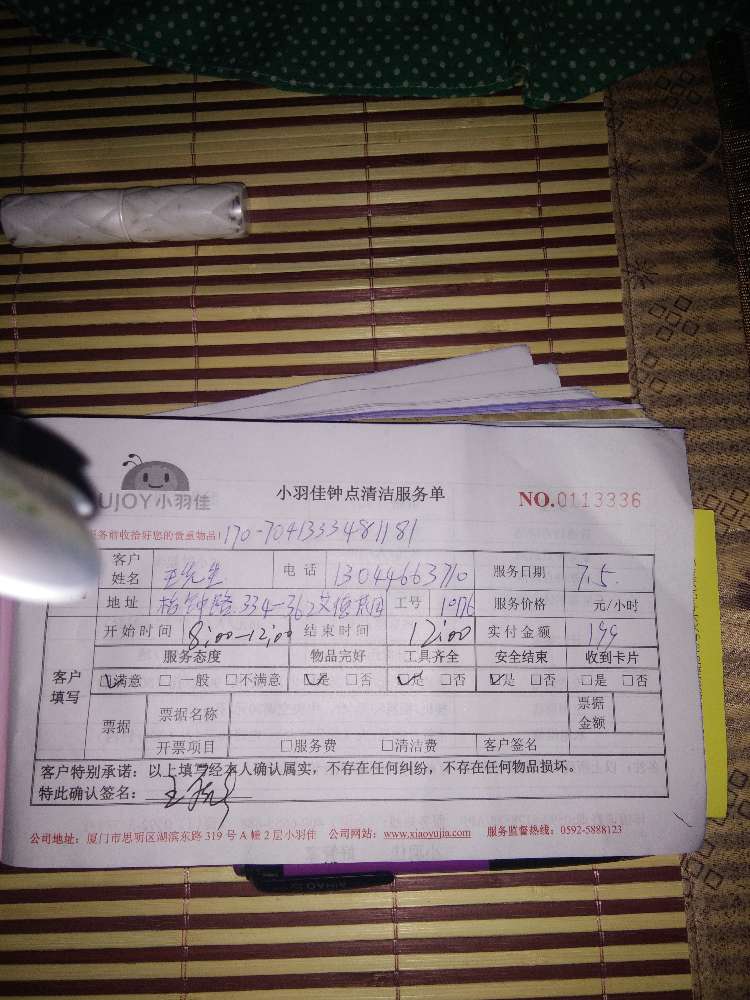 UJOY小羽佳
小羽佳钟点清洁服务单
NO.0113336
务前收拾好您的贵重物品!
客户姓名 王先生 电话 13044663710 服务日期 7.5.
地址 334-362 工号 1076 服务价格 元/小时
开始时间 8:00-12:00 结束时间 12:00 实付金额 199
服务态度 物品完好 工具齐全 安全结束 收到卡片
客户填写 ☑满意 □一般 □不满意 ☑是 □否 ☑是 □否 ☑是 □否 □是 □否
票据 票据名称 票据金额
开票项目 □服务费 □清洁费 客户签名
客户特别承诺:以上填写经本人确认属实,不存在任何纠纷,不存在任何物品损坏。
特此确认签名:
公司地址:厦门市思明区湖滨东路 319 号 A 幢 2 层小羽佳 公司网站:www.xiaoyujia.com 服务监督热线:0592-5888123